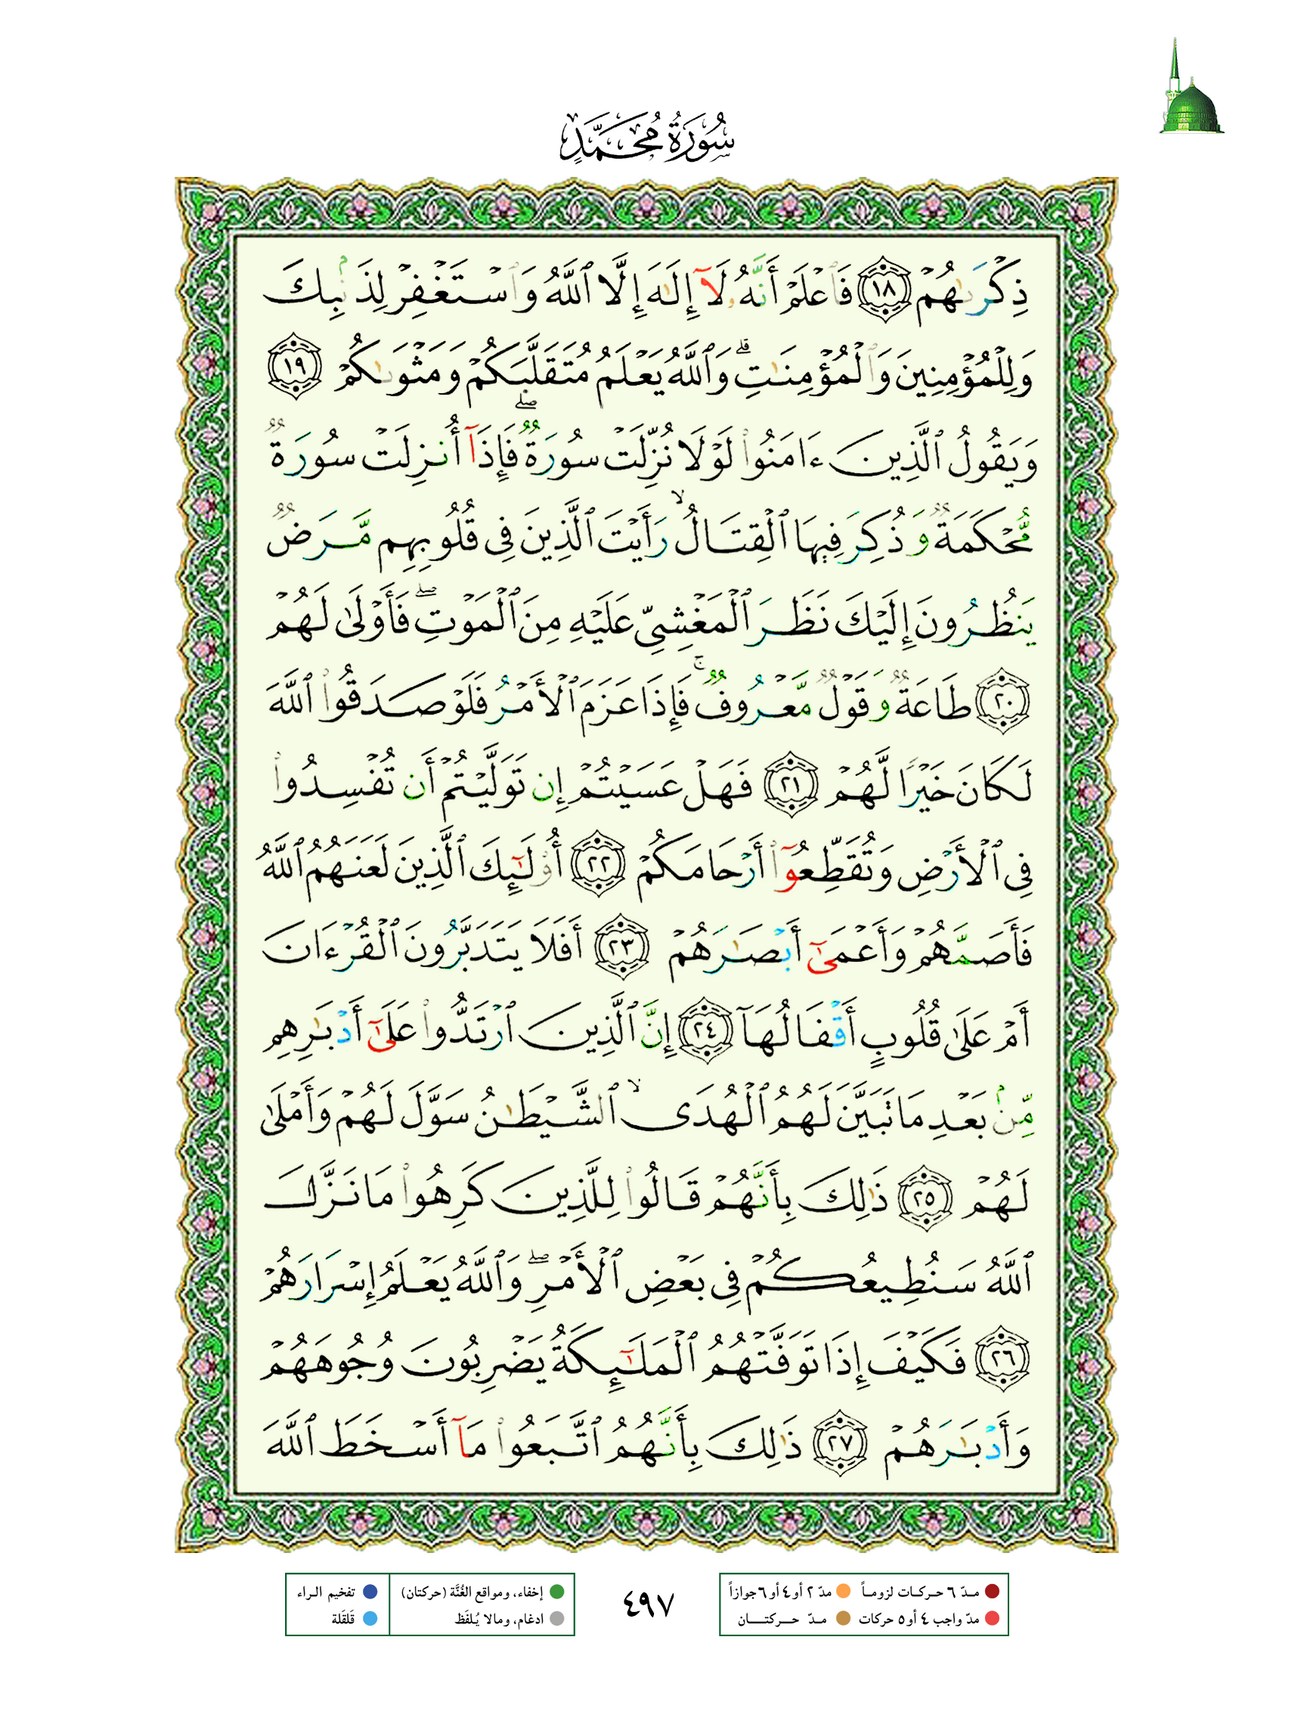 سُورَةُ مُحَمَّدٍ
ذِكْرَىٰهُمْ ١٨ فَٱعْلَمْ أَنَّهُۥ لَآ إِلَٰهَ إِلَّا ٱللَّهُ وَٱسْتَغْفِرْ لِذَنۢبِكَ
وَلِلْمُؤْمِنِينَ وَٱلْمُؤْمِنَٰتِۗ وَٱللَّهُ يَعْلَمُ مُتَقَلَّبَكُمْ وَمَثْوَىٰكُمْ ١٩
وَيَقُولُ ٱلَّذِينَ ءَامَنُوا۟ لَوْلَا نُزِّلَتْ سُورَةٌۖ فَإِذَآ أُنزِلَتْ سُورَةٌ
مُّحْكَمَةٌ وَذُكِرَ فِيهَا ٱلْقِتَالُۙ رَأَيْتَ ٱلَّذِينَ فِى قُلُوبِهِم مَّرَضٌ
يَنظُرُونَ إِلَيْكَ نَظَرَ ٱلْمَغْشِىِّ عَلَيْهِ مِنَ ٱلْمَوْتِۖ فَأَوْلَىٰ لَهُمْ
٢٠ طَاعَةٌ وَقَوْلٌ مَّعْرُوفٌۚ فَإِذَا عَزَمَ ٱلْأَمْرُ فَلَوْ صَدَقُوا۟ ٱللَّهَ
لَكَانَ خَيْرًا لَّهُمْ ٢١ فَهَلْ عَسَيْتُمْ إِن تَوَلَّيْتُمْ أَن تُفْسِدُوا۟
فِى ٱلْأَرْضِ وَتُقَطِّعُوٓا۟ أَرْحَامَكُمْ ٢٢ أُو۟لَٰٓئِكَ ٱلَّذِينَ لَعَنَهُمُ ٱللَّهُ
فَأَصَمَّهُمْ وَأَعْمَىٰٓ أَبْصَٰرَهُمْ ٢٣ أَفَلَا يَتَدَبَّرُونَ ٱلْقُرْءَانَ
أَمْ عَلَىٰ قُلُوبٍ أَقْفَالُهَآ ٢٤ إِنَّ ٱلَّذِينَ ٱرْتَدُّوا۟ عَلَىٰٓ أَدْبَٰرِهِم
مِّنۢ بَعْدِ مَا تَبَيَّنَ لَهُمُ ٱلْهُدَىۙ ٱلشَّيْطَٰنُ سَوَّلَ لَهُمْ وَأَمْلَىٰ
لَهُمْ ٢٥ ذَٰلِكَ بِأَنَّهُمْ قَالُوا۟ لِلَّذِينَ كَرِهُوا۟ مَا نَزَّلَ
ٱللَّهُ سَنُطِيعُكُمْ فِى بَعْضِ ٱلْأَمْرِۖ وَٱللَّهُ يَعْلَمُ إِسْرَارَهُمْ
٢٦ فَكَيْفَ إِذَا تَوَفَّتْهُمُ ٱلْمَلَٰٓئِكَةُ يَضْرِبُونَ وُجُوهَهُمْ
وَأَدْبَٰرَهُمْ ٢٧ ذَٰلِكَ بِأَنَّهُمُ ٱتَّبَعُوا۟ مَآ أَسْخَطَ ٱللَّهَ
مـدّ ٦ حـركـات لزومـاً مدّ ٢ أو ٤ أو ٦ جوازاً
مدّ واجب ٤ أو ٥ حركات مـدّ حـــركتــــان
٤٩٧
إخفاء، ومواقع الغُنَّة (حركتان) تفخيم الـراء
ادغام، ومالا يُـلفَظ قَلقَلة